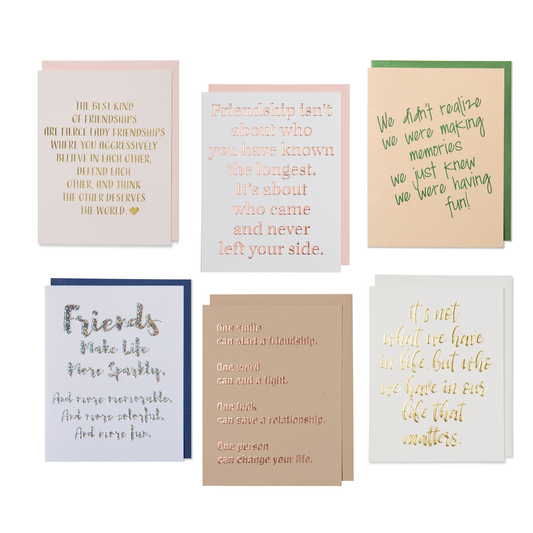 THE BEST KIND
OF FRIENDSHIPS
ARE FIERCE LADY FRIENDSHIPS
WHERE YOU AGGRESSIVELY
BELIEVE IN EACH OTHER,
DEFEND EACH
OTHER, AND THINK
THE OTHER DESERVES
THE WORLD.
Friendship isn't
about who
you have known
the longest.
It's about
who came
and never
left your side.
We didn't realize
we were making
memories
we just knew
we were having
fun!
Friends
Make Life
More Sparkly.
And more memorable.
And more colorful.
And more fun.
One smile
can start a friendship.
One word
can end a fight.
One look
can save a relationship.
One person
can change your life.
it's not
what we have
in life, but who
we have in our
life that
matters.